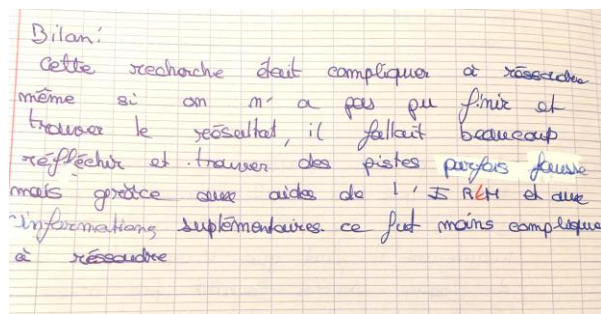 Bilan:
Cette recherche était compliquer à réssoudre
même si on n'a pas pu finir et
trouver le résultat, il fallait beaucoup
réfléchir et trouver des pistes parfois fausse
mais grâce aux aides de l'IREM et aux
informations suplémentaires ce fut moins complique
à réssoudre